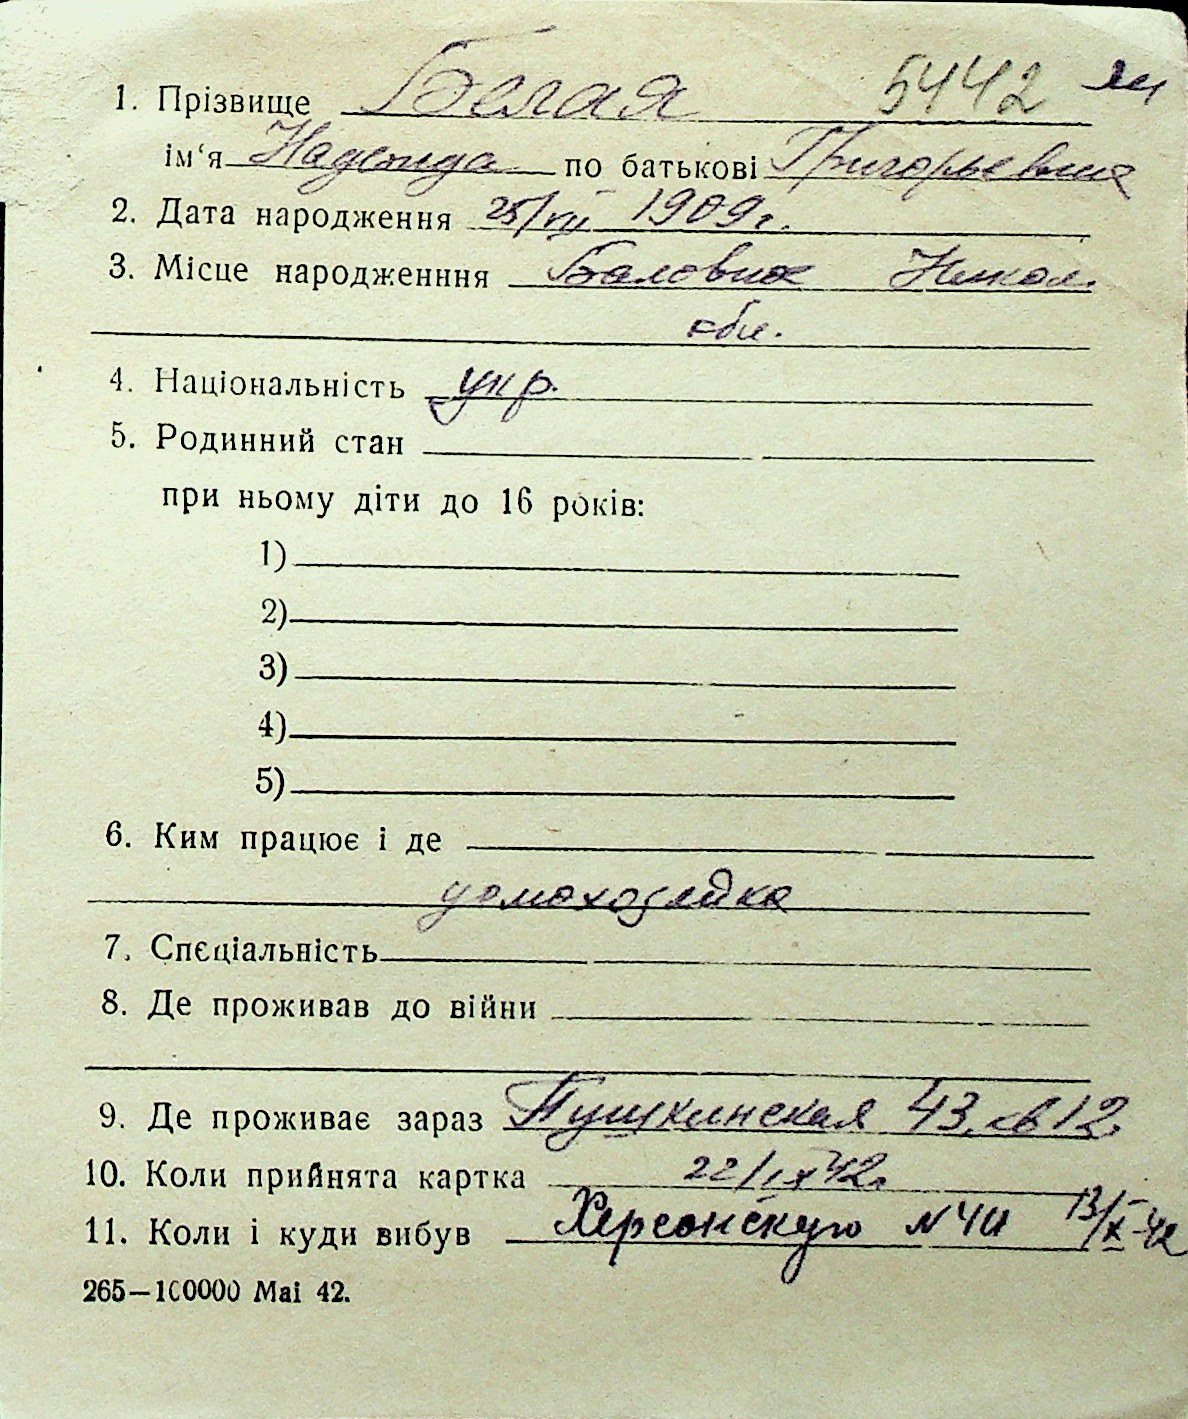 1. Прізвище Белая 5442
ім‘я Надежда по батькові Григорьевна
2. Дата народження 25/VII 1909г.
3. Місце народженння Баловна Никол.
обл.
4. Національність укр.
5. Родинний стан
при ньому діти до 16 років:
1)
2)
3)
4)
5)
6. Ким працює і де
домохозяйка
7. Спєціальність
8. Де проживав до війни
9. Де проживає зараз Пушкинская 43, кв 12
10. Коли прийнята картка 22/IX 42г.
11. Коли і куди вибув Херсонскую N 13/X-42
265—100000 Маі 42.